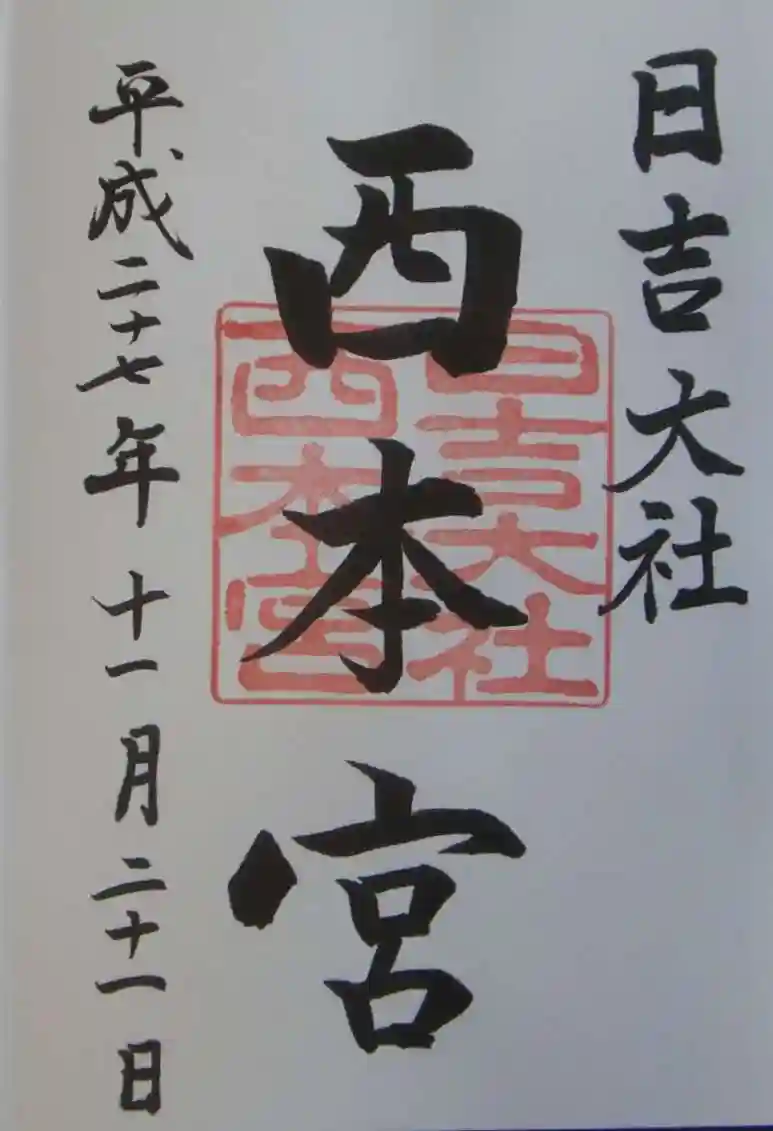 日吉大社
西本宮
日吉大社
西本宮
平成二十七年十一月二十一日